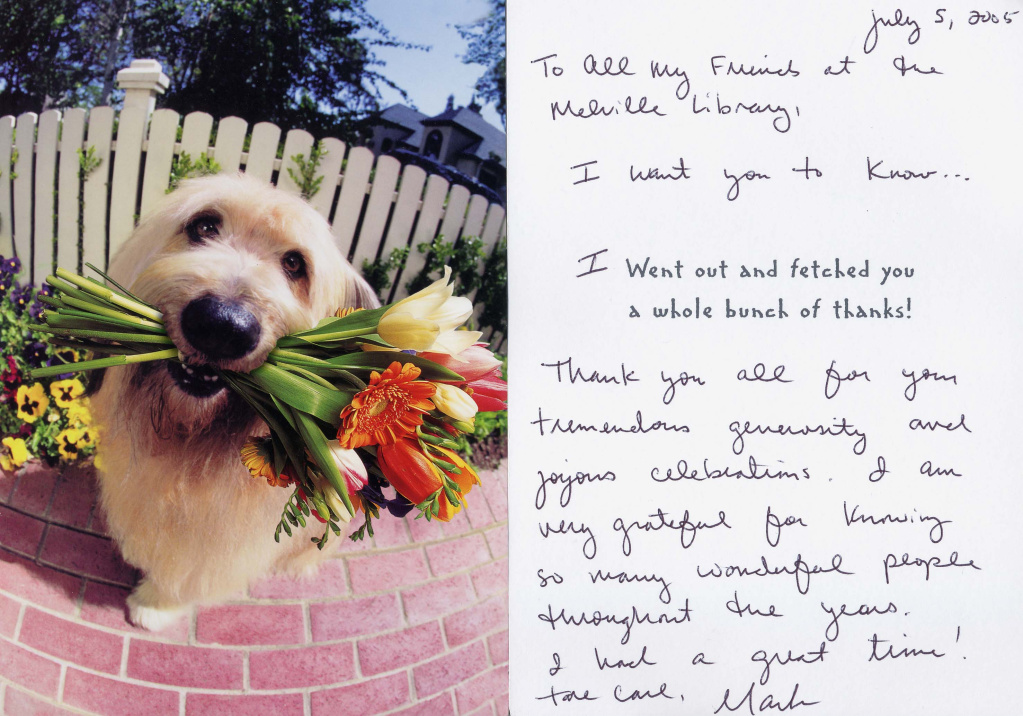 July 5, 2005
To All my Friends at the
Melville Library,
I want you to know...
I Went out and fetched you
a whole bunch of thanks!
Thank you all for your
tremendous generosity and
joyous celebrations. I am
very grateful for knowing
so many wonderful people
throughout the years.
I had a great time!
Take care, Mark